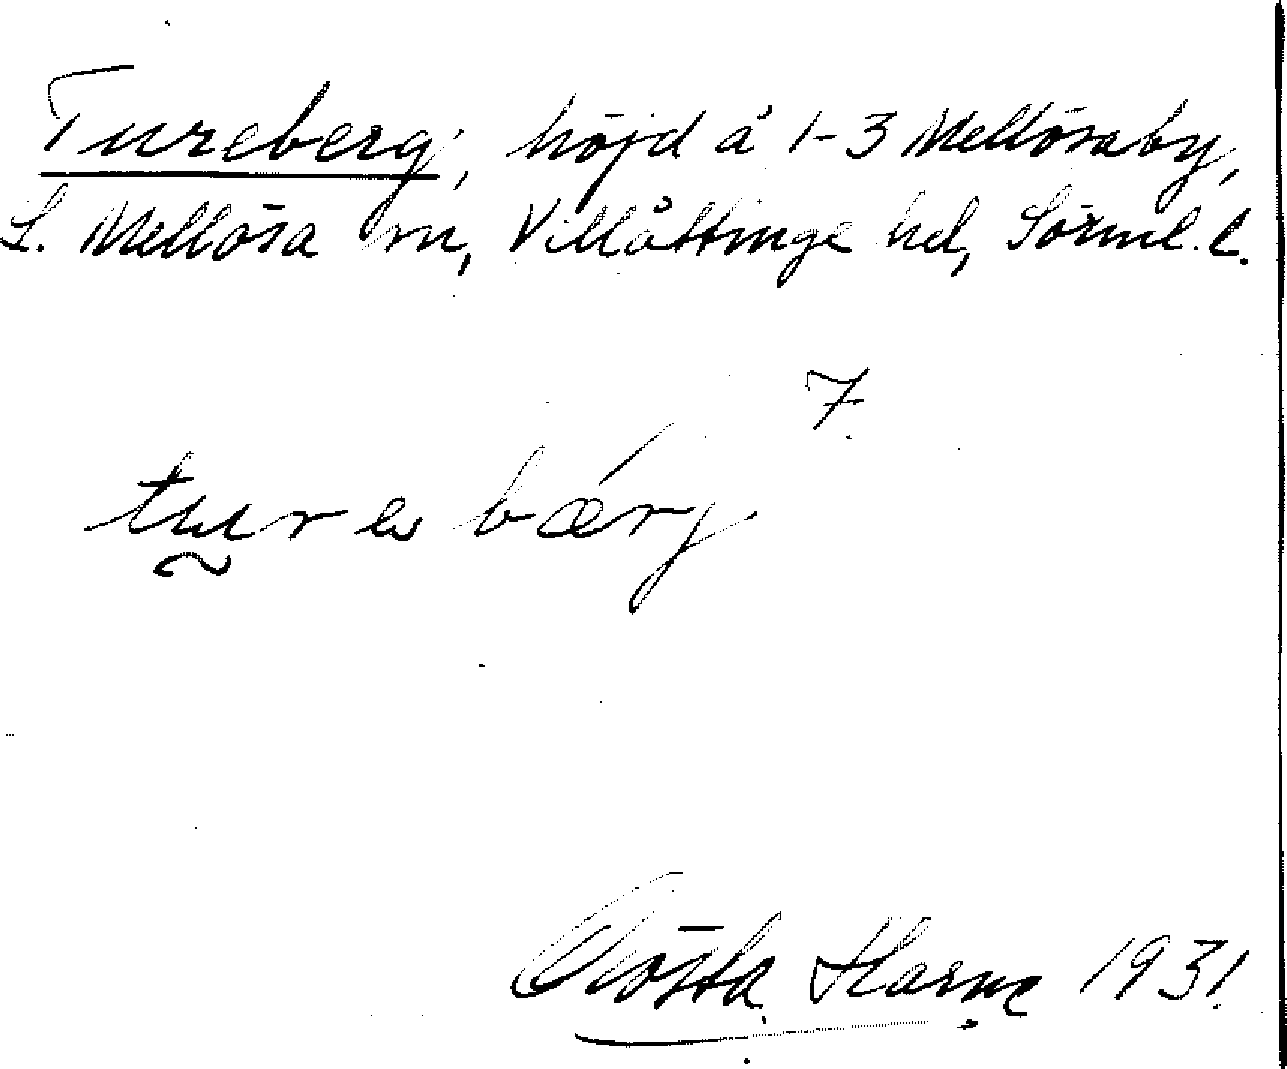 Tureberg, höjd å 1-3 Mellösaby,
L. Mellösa sn, Villåttinge hd, Sörml. l.
7.
turebǽrj
Gösta Harne 1931.